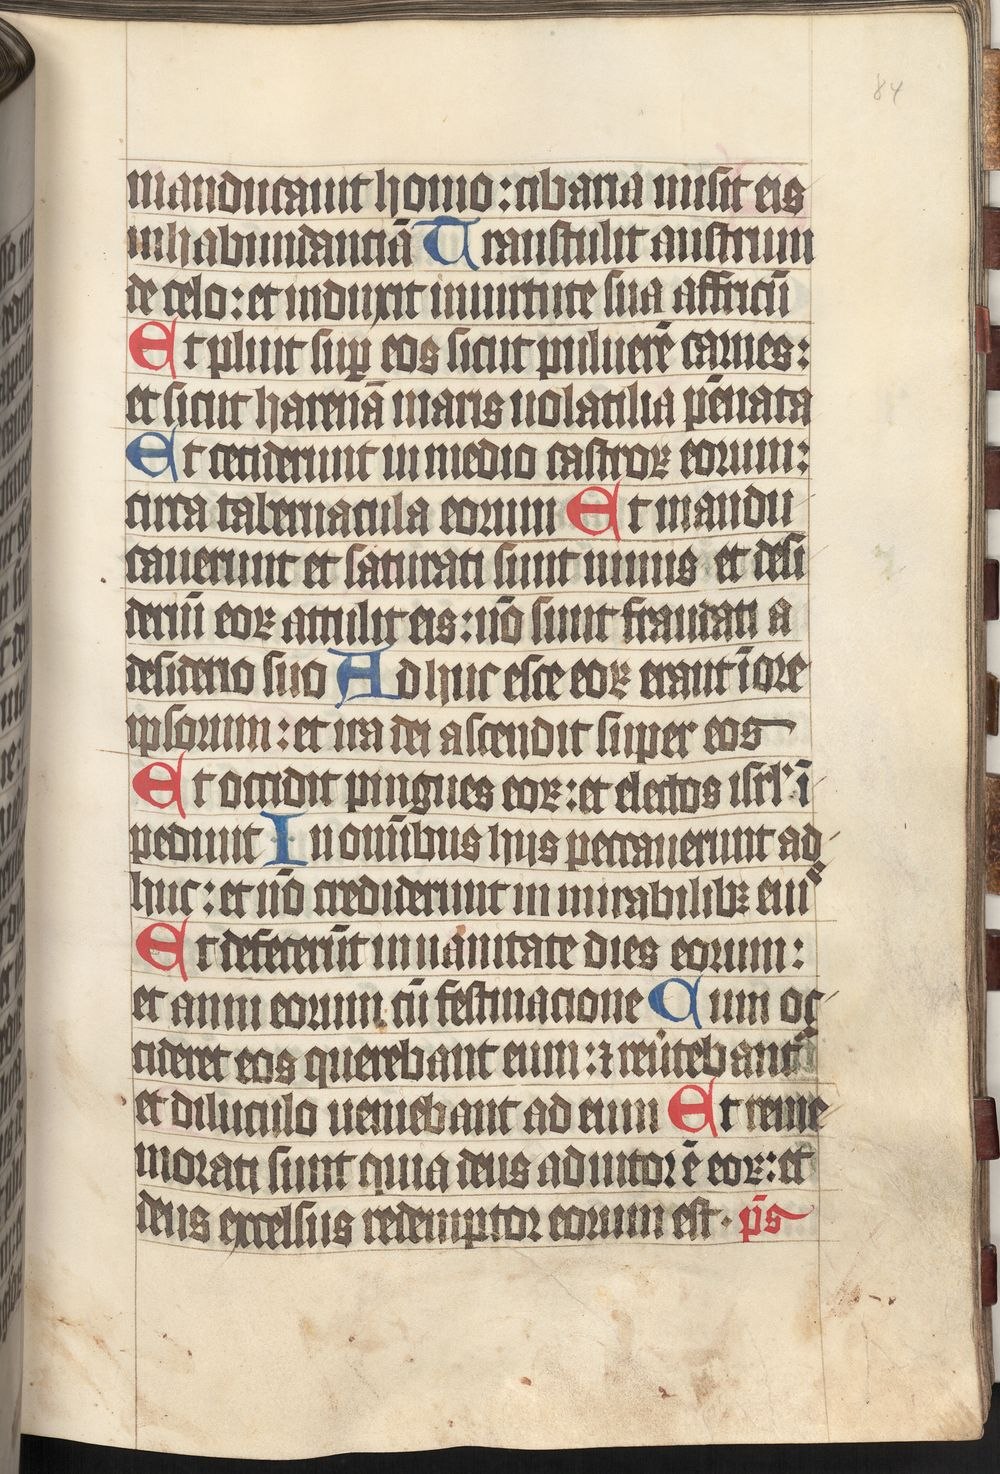 84
manducauit homo : cibaria misit eis
inhabundanciā Transtulit austrum
de celo : et induxit inuirtute sua affricū
Et pluit suꝑ eos sicut puluerē carnes :
et sicut harenā maris uolatilia pēnata
Et ceciderunt in medio castroꝝ eorum :
circa tabernacula eorum Et mandu
cauerunt et saturati sunt nimis et desi
deriū eoꝝ attulit eis : nō sunt fraudati a
desiderio suo Adhuc esce eoꝝ erant ī ore
ipsorum : et ira dei ascendit super eos
Et occidit pingues eoꝝ : et electos isrl' ī
pediuit In omībus hijs peccauerunt ad
huc : et nō crediderunt in mirabilibꝫ eiuꝰ
Et defecerūt in uanitate dies eorum :
et anni eorum cū festinacione Cum oc
cideret eos querebant eum : ⁊ reūtebantᷣ
et diluculo ueniebant ad eum Et reme
morati sunt quia deus adiutor ē eoꝝ : et
deus excelsus redemptor eorum est · p̄s